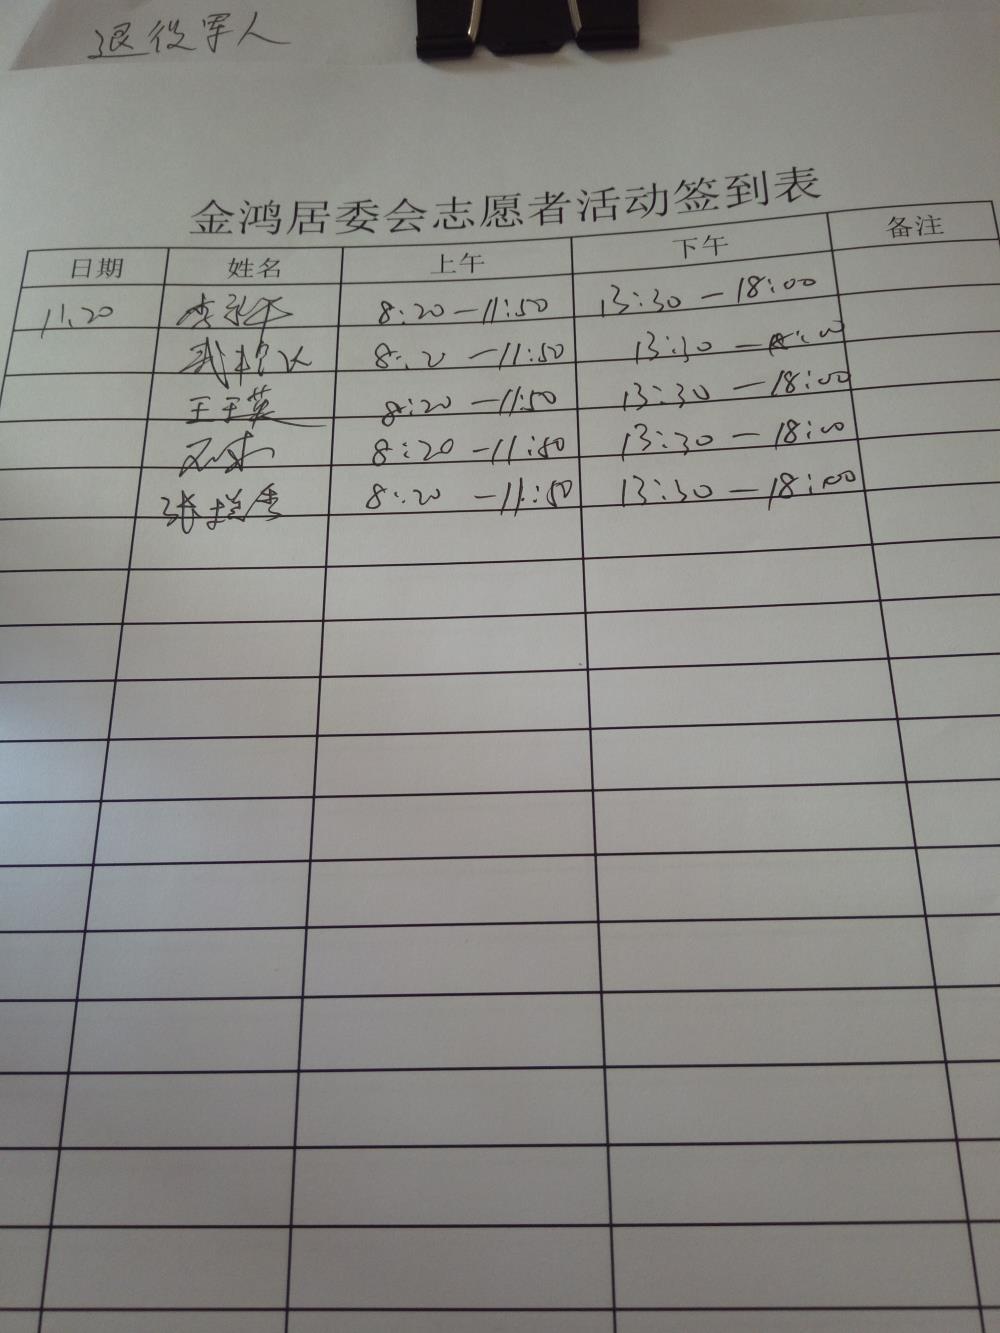 退役军人
金鸿居委会志愿者活动签到表
日期 姓名 上午 下午 备注
11.20 8:20—11:50 13:30—18:00
8:20—11:50 13:30—18:00
王玉英 8:20—11:50 13:30—18:00
8:20—11:50 13:30—18:00
张 8:20—11:50 13:30—18:00